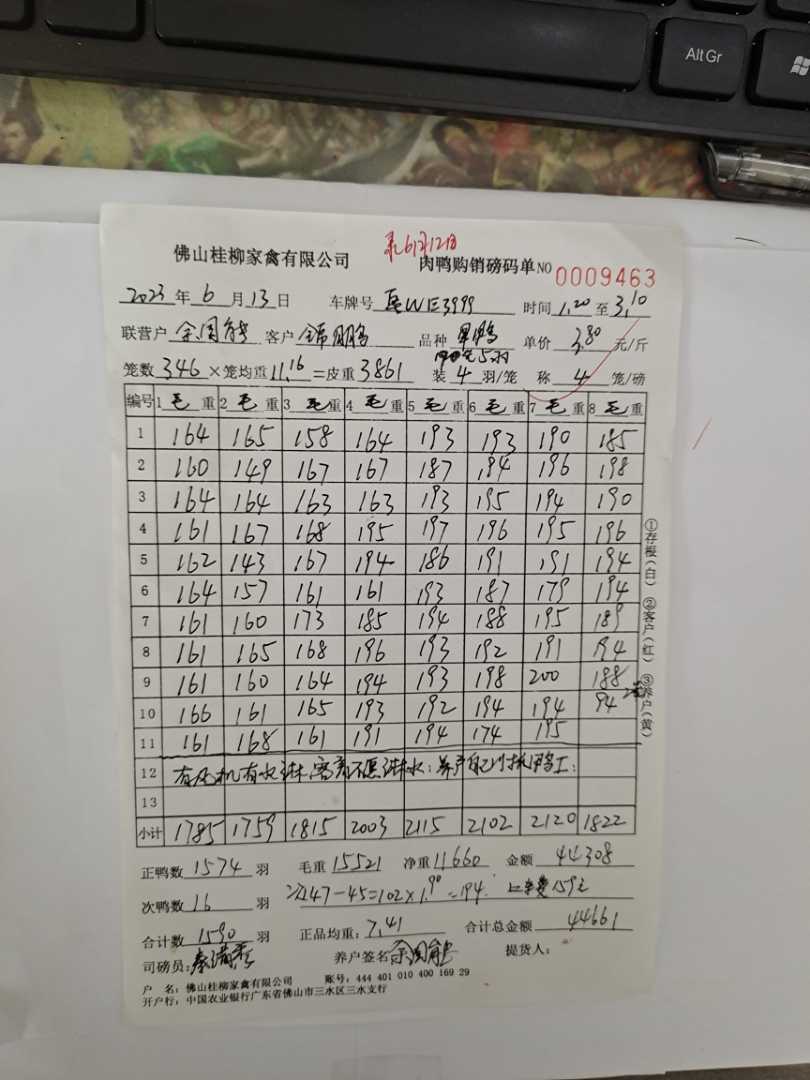 Alt Gr
录6月12日
佛山桂柳家禽有限公司 肉鸭购销磅码单 NO 0009463
2023年6月13日 车牌号 WE3999 时间 1,20 至 3,10
联营户 余国能 客户 品种 单价 3.80 元/斤
笼数 346 ×笼均重 11.16 =皮重 3861 装 4 羽/笼 称 4 笼/磅
编号 1 毛 重 2 毛 重 3 毛 重 4 毛 重 5 毛 重 6 毛 重 7 毛 重 8 毛 重
1 164 165 158 164 193 193 190 185
2 160 149 167 167 187 194 196 198
3 164 164 163 163 193 195 194 190
4 161 167 168 195 197 196 195 196
5 162 143 167 194 186 191 191 194
6 164 157 161 161 193 187 179 194
7 161 160 173 185 194 188 195 189
8 161 165 168 196 193 192 191 194
9 161 160 164 194 193 198 200 188
10 166 161 165 193 192 194 194 94
11 161 168 161 191 194 174 195
12 有风机有水淋,客户不愿淋水;养户自己
13
小计 1785 1759 1815 2003 2115 2102 2120 1822
正鸭数 1574 羽 毛重 15521 净重 11660 金额 44308
次鸭数 16 羽 147-45=102×1.90=194. 159元
合计数 1590 羽 正品均重: 7.41 合计总金额 44661
司磅员: 养户签名 余国能 提货人:
户 名: 佛山桂柳家禽有限公司 账号: 444 401 010 400 169 29
开户行: 中国农业银行广东省佛山市三水区三水支行
①存根(白) ②客户(红) ③养户(黄)